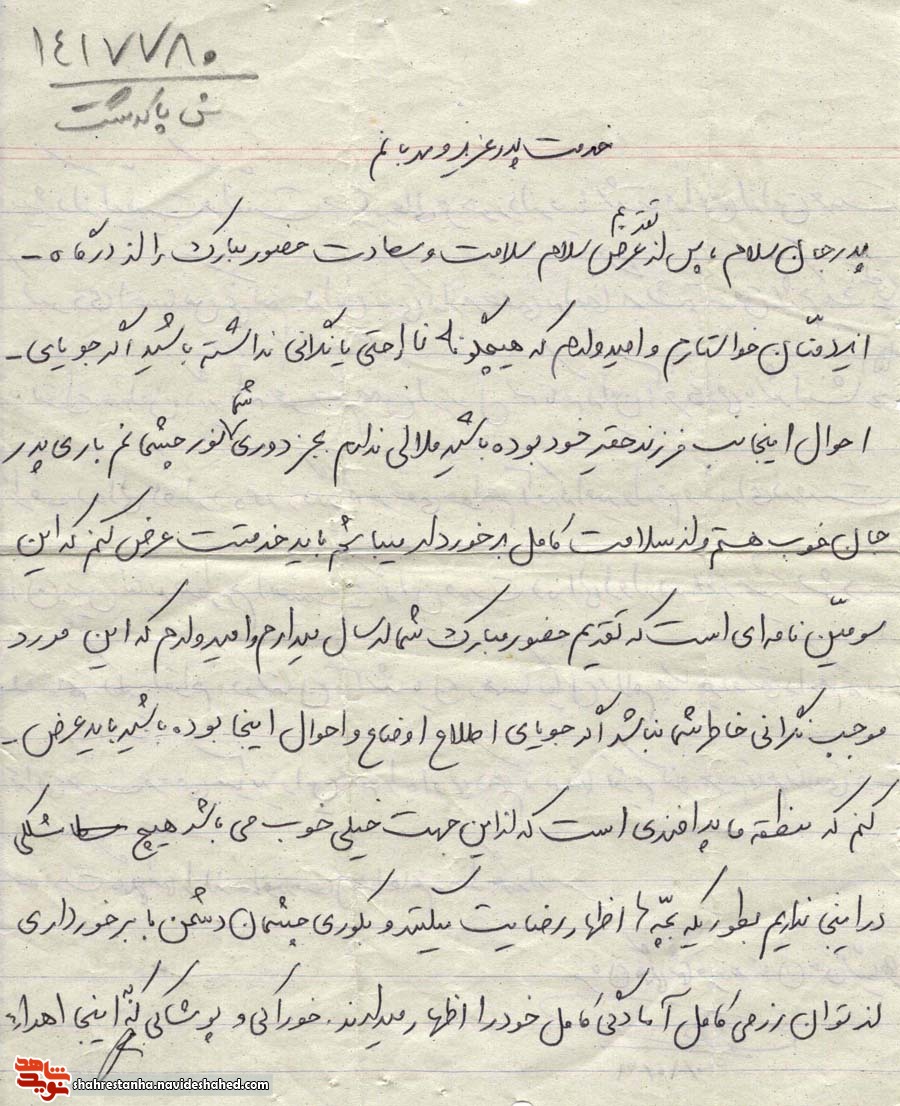 ۱۴۱۷۷۸۰
ش پاکدشت
خدمت پدر عزیز و مهربانم
تقدیم
پدر جان سلام ، پس از عرض سلام سلامت و سعادت حضور مبارک را از درگاه -
ایزد منّان خواستارم و امیدوارم که هیچگونه ناراحتی یا نگرانی نداشته باشید اگر جویای -
شما
احوال اینجانب فرزند حقیر خود بوده باشید ملالی ندارم بجز دوری نور چشمانم باری پدر
جان خوب هستم و از سلامت کامل برخوردار میباشم باید خدمتت عرض کنم که این
سومّین نامه‌ای است که تقدیم حضور مبارک شما ارسال میدارم و امیدوارم که این مورد
موجب نگرانی خاطر شما نباشد اگر جویای اطلاع اوضاع و احوال اینجا بوده باشید باید عرض -
کنم که منطقه ما پدافندی است که از این جهت خیلی خوب می باشد هیچ مشکلی
در اینجا نداریم بطوریکه بچّه ها اظهار رضایت میکنند و بکوری چشمان دشمن با برخورداری
از توان رزمی کامل آمادگی کامل خود را اظهار میدارند. خوراکی و پوشاکی که اینجا اهداء
شاهد
نوید
shahrestanha.navideshahed.com